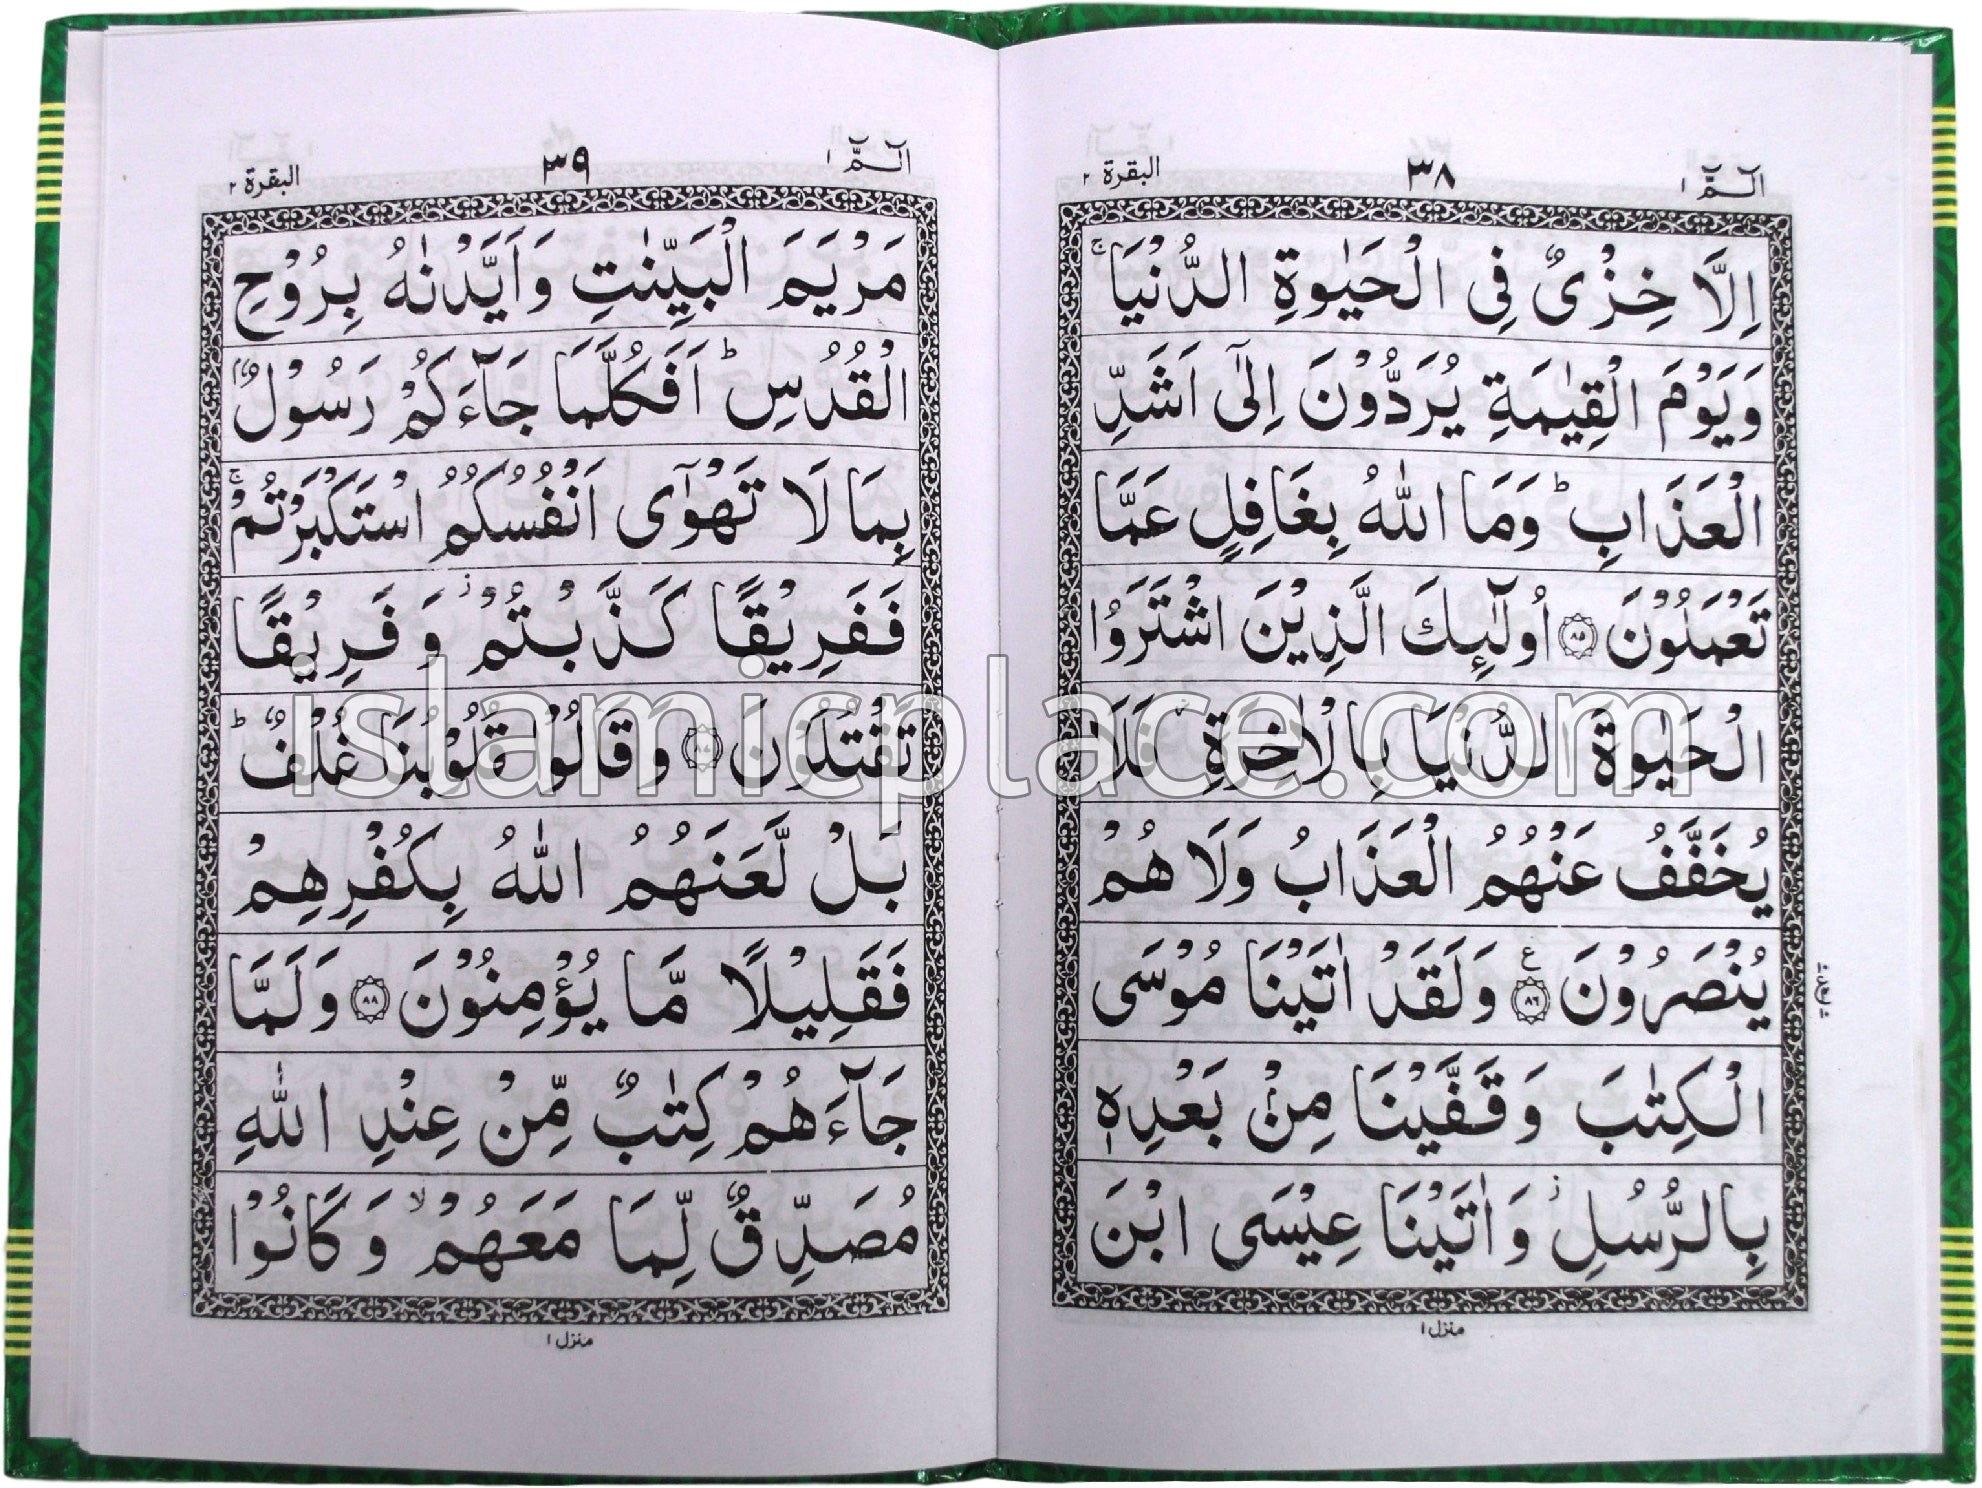 الٓـمّٓ ١
٣٨
البقرة ٢
اِلَّا خِزْیٌ فِی الْحَیٰوةِ الدُّنْیَا ۚ
وَیَوْمَ الْقِیٰمَةِ یُرَدُّوْنَ اِلٰۤی اَشَدِّ
الْعَذَابِ ؕ وَمَا اللّٰهُ بِغَافِلٍ عَمَّا
تَعْمَلُوْنَ ﴿۸۵﴾ اُولٰٓىِٕكَ الَّذِیْنَ اشْتَرَوُا
الْحَیٰوةَ الدُّنْیَا بِالْاٰخِرَةِ ؗ فَلَا
یُخَفَّفُ عَنْهُمُ الْعَذَابُ وَلَا هُمْ
یُنْصَرُوْنَ ﴿۸۶﴾ ع وَلَقَدْ اٰتَیْنَا مُوْسَی
الْكِتٰبَ وَقَفَّیْنَا مِنْۢ بَعْدِهٖ
بِالرُّسُلِ ؗ وَاٰتَیْنَا عِیْسَی ابْنَ
منزل ١
الٓـمّٓ ١
٣٩
البقرة ٢
مَرْیَمَ الْبَیِّنٰتِ وَاَیَّدْنٰهُ بِرُوْحِ
الْقُدُسِ ؕ اَفَكُلَّمَا جَآءَكُمْ رَسُوْلٌۢ
بِمَا لَا تَهْوٰۤی اَنْفُسُكُمُ اسْتَكْبَرْتُمْ ۚ
فَفَرِیْقًا كَذَّبْتُمْ ؗ وَفَرِیْقًا
تَقْتُلُوْنَ ﴿۸۷﴾ وَقَالُوْا قُلُوْبُنَا غُلْفٌ ؕ
بَلْ لَّعَنَهُمُ اللّٰهُ بِكُفْرِهِمْ
فَقَلِیْلًا مَّا یُؤْمِنُوْنَ ﴿۸۸﴾ وَلَمَّا
جَآءَهُمْ كِتٰبٌ مِّنْ عِنْدِ اللّٰهِ
مُصَدِّقٌ لِّمَا مَعَهُمْ ۙ وَكَانُوْا
منزل ١
islamicplace.com